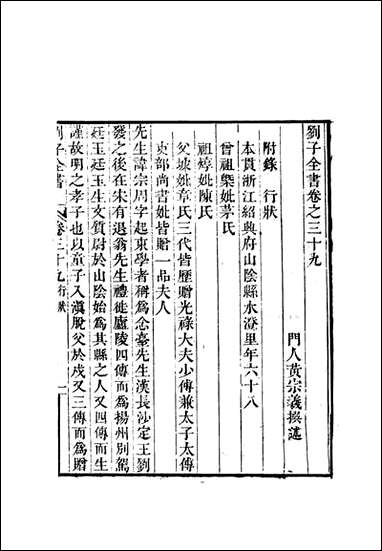 劉子全書卷之三十九
門人黃宗羲撰述
附錄 行狀
本貫浙江紹興府山陰縣水澄里年六十八
曾祖槩妣茅氏
祖焞妣陳氏
父坡妣章氏三代皆歷贈光祿大夫少傅兼太子太傅
吏部尚書妣皆贈一品夫人
先生諱宗周字起東學者稱為念臺先生漢長沙定王劉
發之後在宋有退翁先生禮徙廬陵四傳而爲揚州別駕
廷玉廷玉生文質尉於山陰始爲其縣之人又四傳而生
謹故明之孝子也以童子入滇脫父於戍又三傳而爲贈
劉子全書 卷三十九 行狀 一